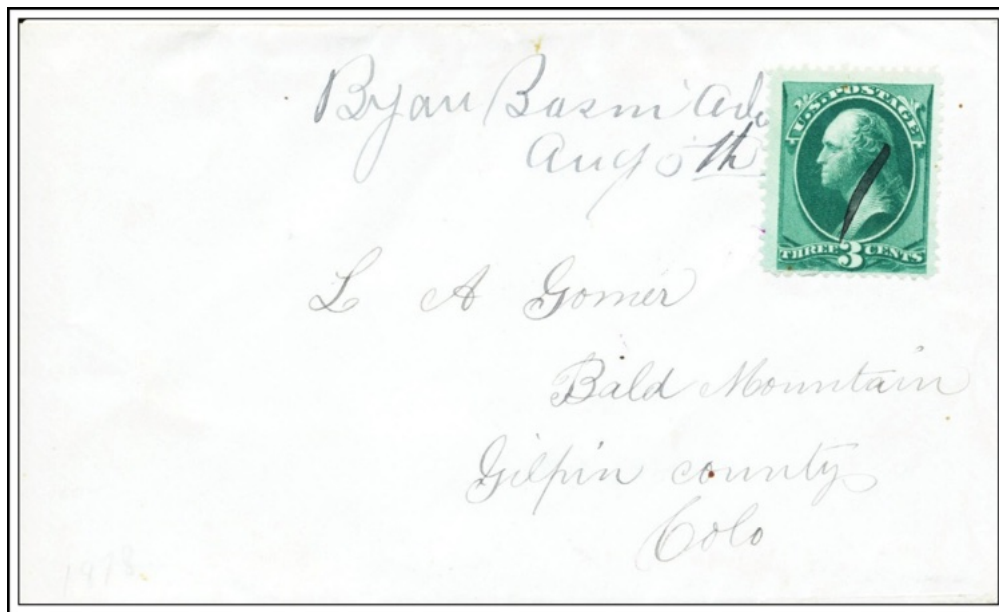 Bijou Basin
Aug 5th
U.S. POSTAGE
THREE 3 CENTS
L A Gomer
Bald Mountain
Gilpin county
Colo
1878